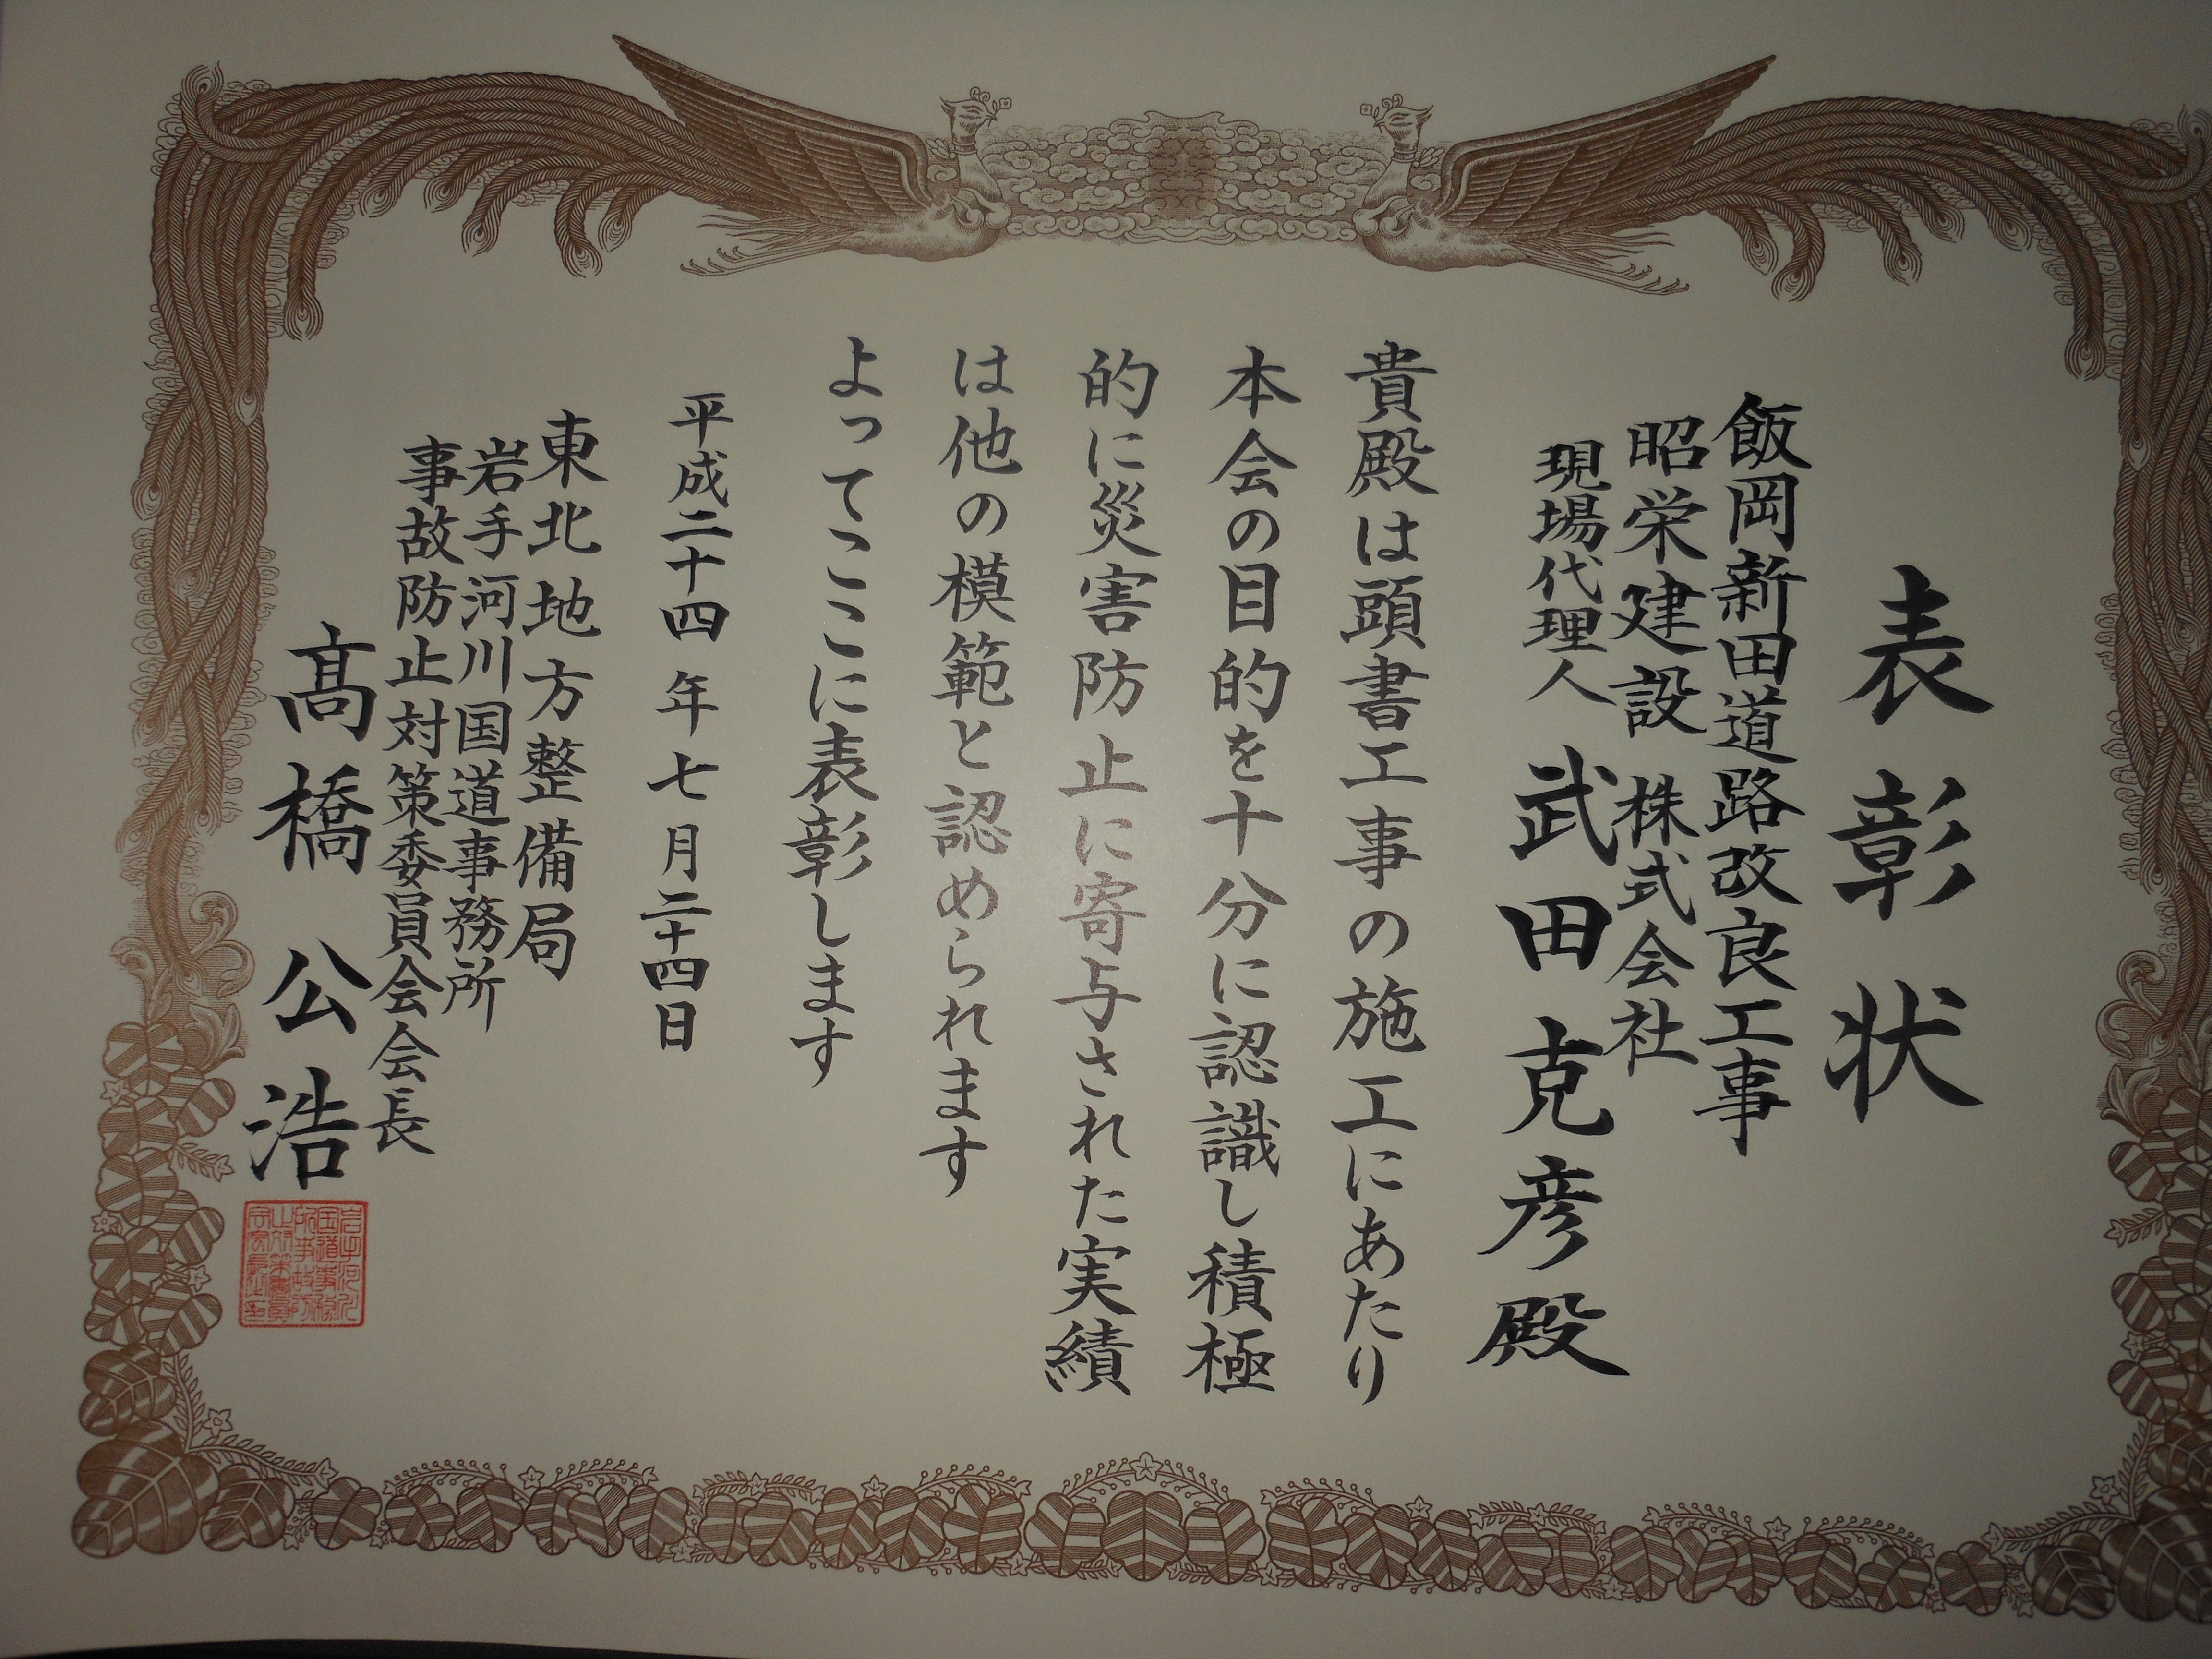 表彰状
飯岡新田道路改良工事
昭栄建設 株式会社
現場代理人 武田克彦殿
貴殿は頭書工事の施工にあたり
本会の目的を十分に認識し積極
的に災害防止に寄与された実績
は他の模範と認められます
よってここに表彰します
平成二十四年七月二十四日
東北地方整備局
岩手河川国道事務所
事故防止対策委員会会長
髙橋公浩